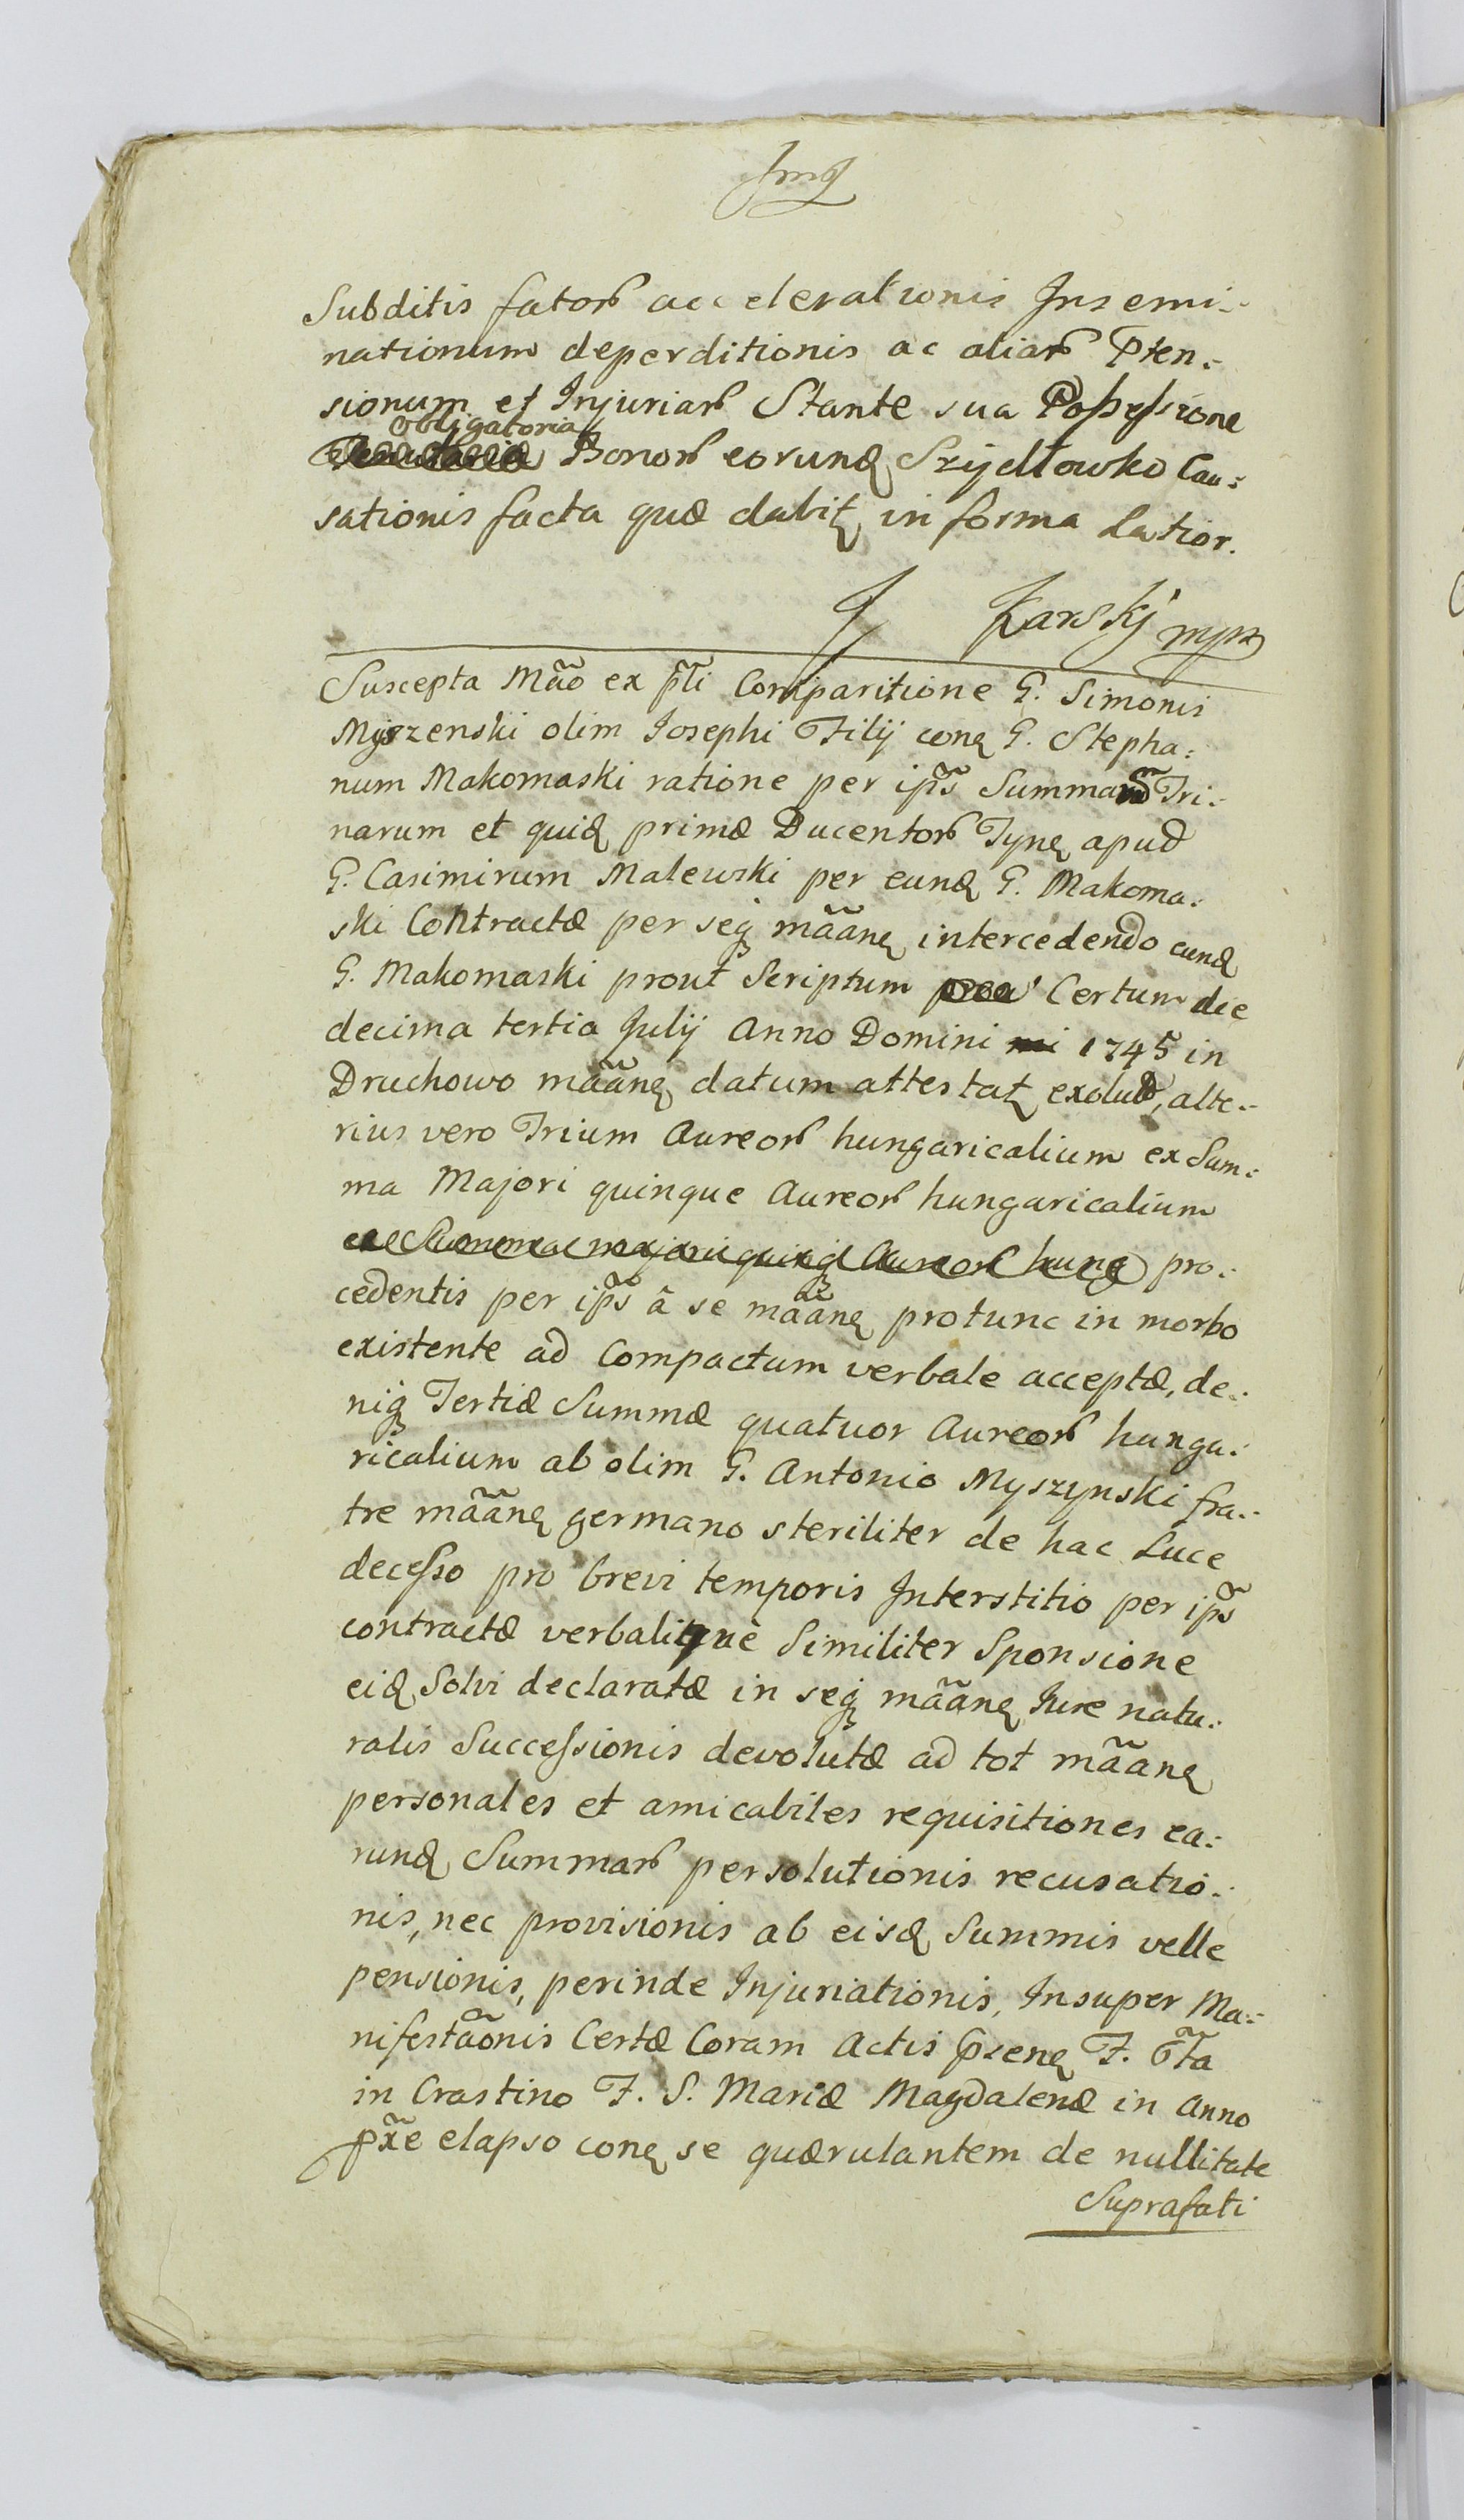 Subditis fator̄ accelerationis Insemi-
nationum deperditionis ac aliar̄ Pten-
sionum et Injuriar̄ Stante sua Possessione
obligatoria
Bonor̄ eorund Szydłowko Cau-
sationis facta quæ dabit in forma Latior.
J Karskj mpr
Suscepta Mão ex p̃ti Comparitione G. Simonis
Myszenski olim Josephi Filij conq G. Stepha-
num Makomaski ratione per ip̃s Summar̃ Tri-
narum et quid primæ Ducentor̄ Tynq apud
G. Casimirum Malewski per eund G. Makoma-
ski Contractæ per seq mããnq intercedendo eund
G. Makomaski prout Scriptum Certum die
decima tertia Julij Anno Domini 1745 in
Druchowo mããnq datum attestat, exolut, alte-
rius vero Trium Aureor̄ hungaricalium ex Sum-
ma Majori quinque Aureor̄ hungaricalium
ex Summa majori quinq Aureor̄ hung pro-
cedentis per ip̃s â se mããnq protunc in morbo
existente ad Compactum verbale acceptæ, de-
niq Tertiæ Summæ quatuor Aureor̄ hunga-
ricalium ab olim G. Antonio Myszynski fra-
tre mããnq germano steriliter de hac Luce
decesso pro brevi temporis Interstitio per ip̃s
contractæ verbalique Similiter Sponsione
eid Solvi declaratæ in seq mããnq Jure natu-
ralis Successionis devolutæ ad tot mããnq
personales et amicabiles requisitiones ea-
rund Summar̄ persolutionis recusatio-
nis, nec provisionis ab eisd Summis velle
pensionis, perinde Injuriationis, Insuper Ma-
nifestãonis Certæ Coram Actis p̃senq F. 6ta
in Crastino F. S. Mariæ Magdalenæ in Anno
p̃xe elapso conq se quærulantem de nullitate
Suprafati